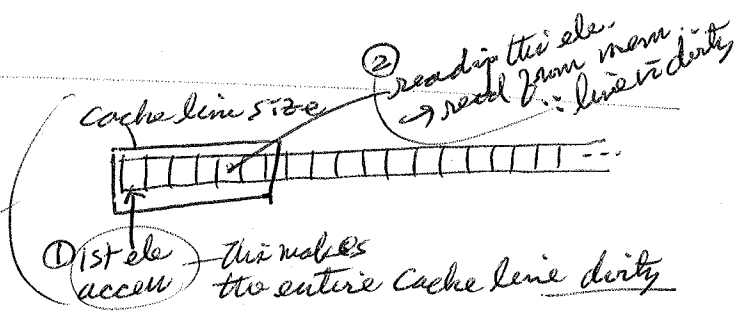 cache line size
②
reading this ele.
→ read from mem.
∴ line is dirty
① 1st ele
access
— this makes
the entire Cache line dirty